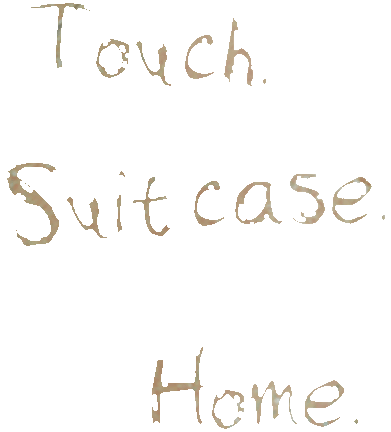 Touch.
Suitcase.
Home.